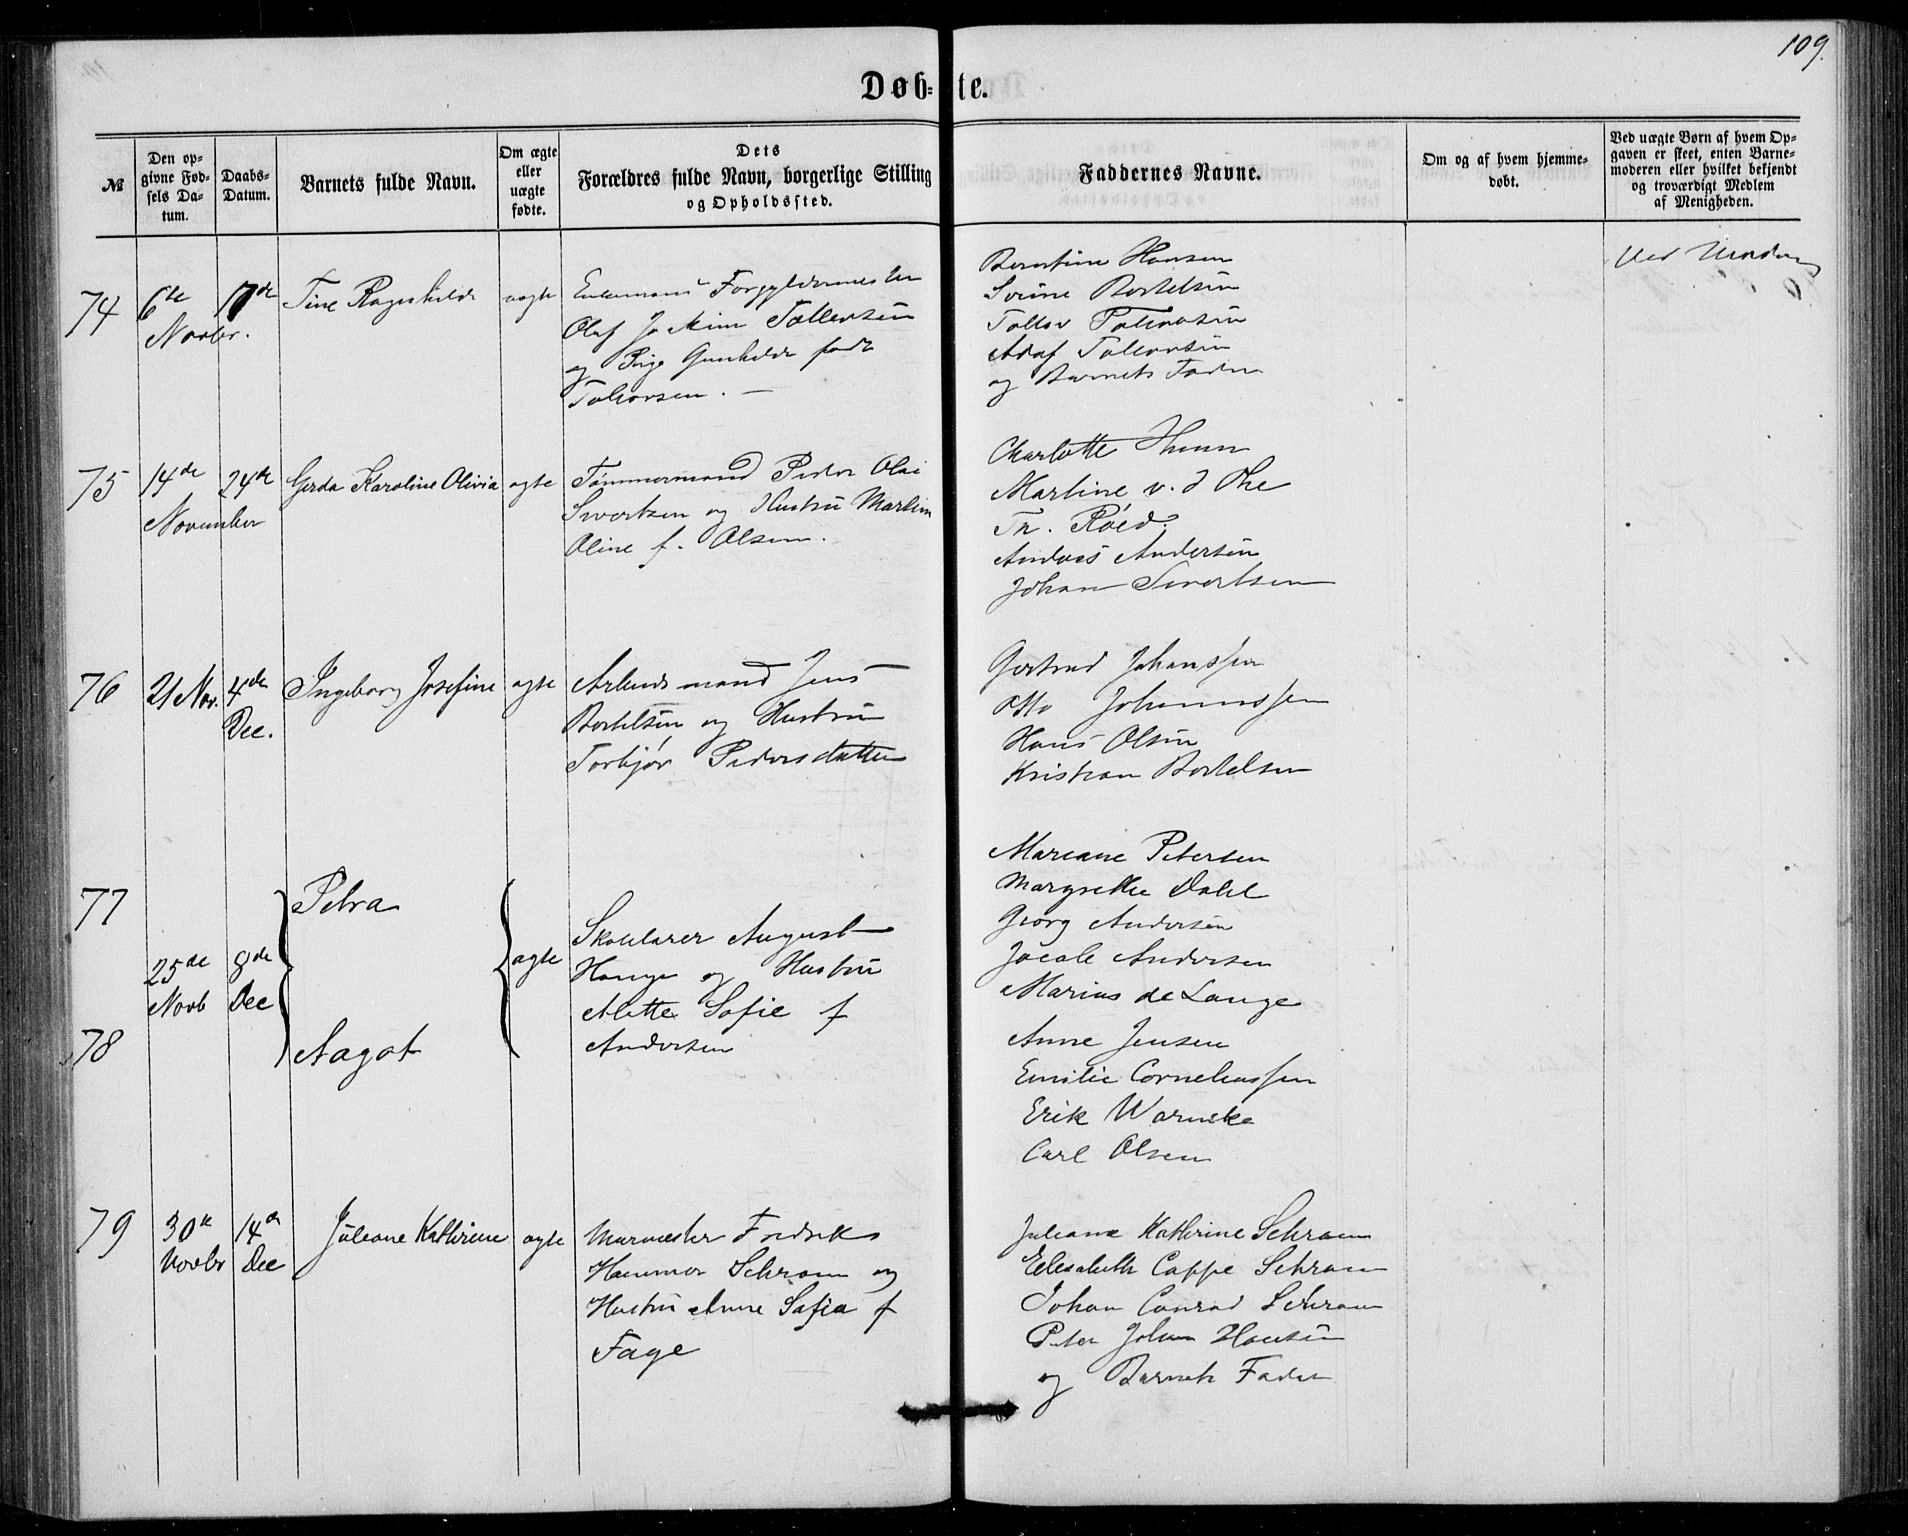 109.
Døb- te.
№
Den op-
givne Fød-
sels Da-
tum.
Daabs-
Datum.
Barnets fulde Navn.
Om ægte
eller
uægte
fødte.
Dets
Forældres fulde Navn, borgerlige Stilling
og Opholdssted.
Faddernes Navne.
Om og af hvem hjemme-
døbt.
Ved uægte Børn af hvem Op-
gaven er skeet, enten Barne-
moderen eller hvilket bekjendt
og troværdigt Medlem
af Menigheden.
74
6te
Novbr.
17de
Tine Ragnhilde
uægte
Forgyldermester
Olaf Jockim Tallersen
og Pige Gunhilde født
Tollevsen. —
Berntine Hansen
Serine Bertelsen
Tollev Tollevsen
Adolf Tollevsen
og Barnets Fader
Ved
75
14de
November
24de
Gerda Karoline Olivia
ægte
Tømmermand Peder Olai
Sivertsen og Hustru Martine
Oline f. Olsen.
Charlotte Thunn
Martine v. d The
Th. Røed.
Andreas Andersen
Johan Sivertsen
76
21 Nov.
4de
Dec.
Ingeborg Josefine
ægte
Arbeidsmand Jens
Bertelsen og Hustru
Torbjør Pedersdatter
Gertrud Johanssen
Otto Johannssen
Hans Olsen
Kristian Bertelsen
77
25de
Novb
8de
Dec
Petra
ægte
Skolelærer August
Hauge og Hustru
Mette Sofie f
Andersen
Mariane Petersen
Margrethe Dahl
Georg Andersen
Jacob Andersen
Marius de Lange
78
Aagot
Anne Jensen
Emilie Corneliussen
Erik Warnike
Carl Olsen
79
30te
Novbr
14de
Dec
Juliane Kathrine
ægte
Murmester Fredrik
Hammer Schram og
Hustru Anne Sofia f
Fage
Juliane Kathrine Schram
Elisabeth Cappe Schram
Johan Conrad Schram
Peter Johan Hansen
og Barnets Fader